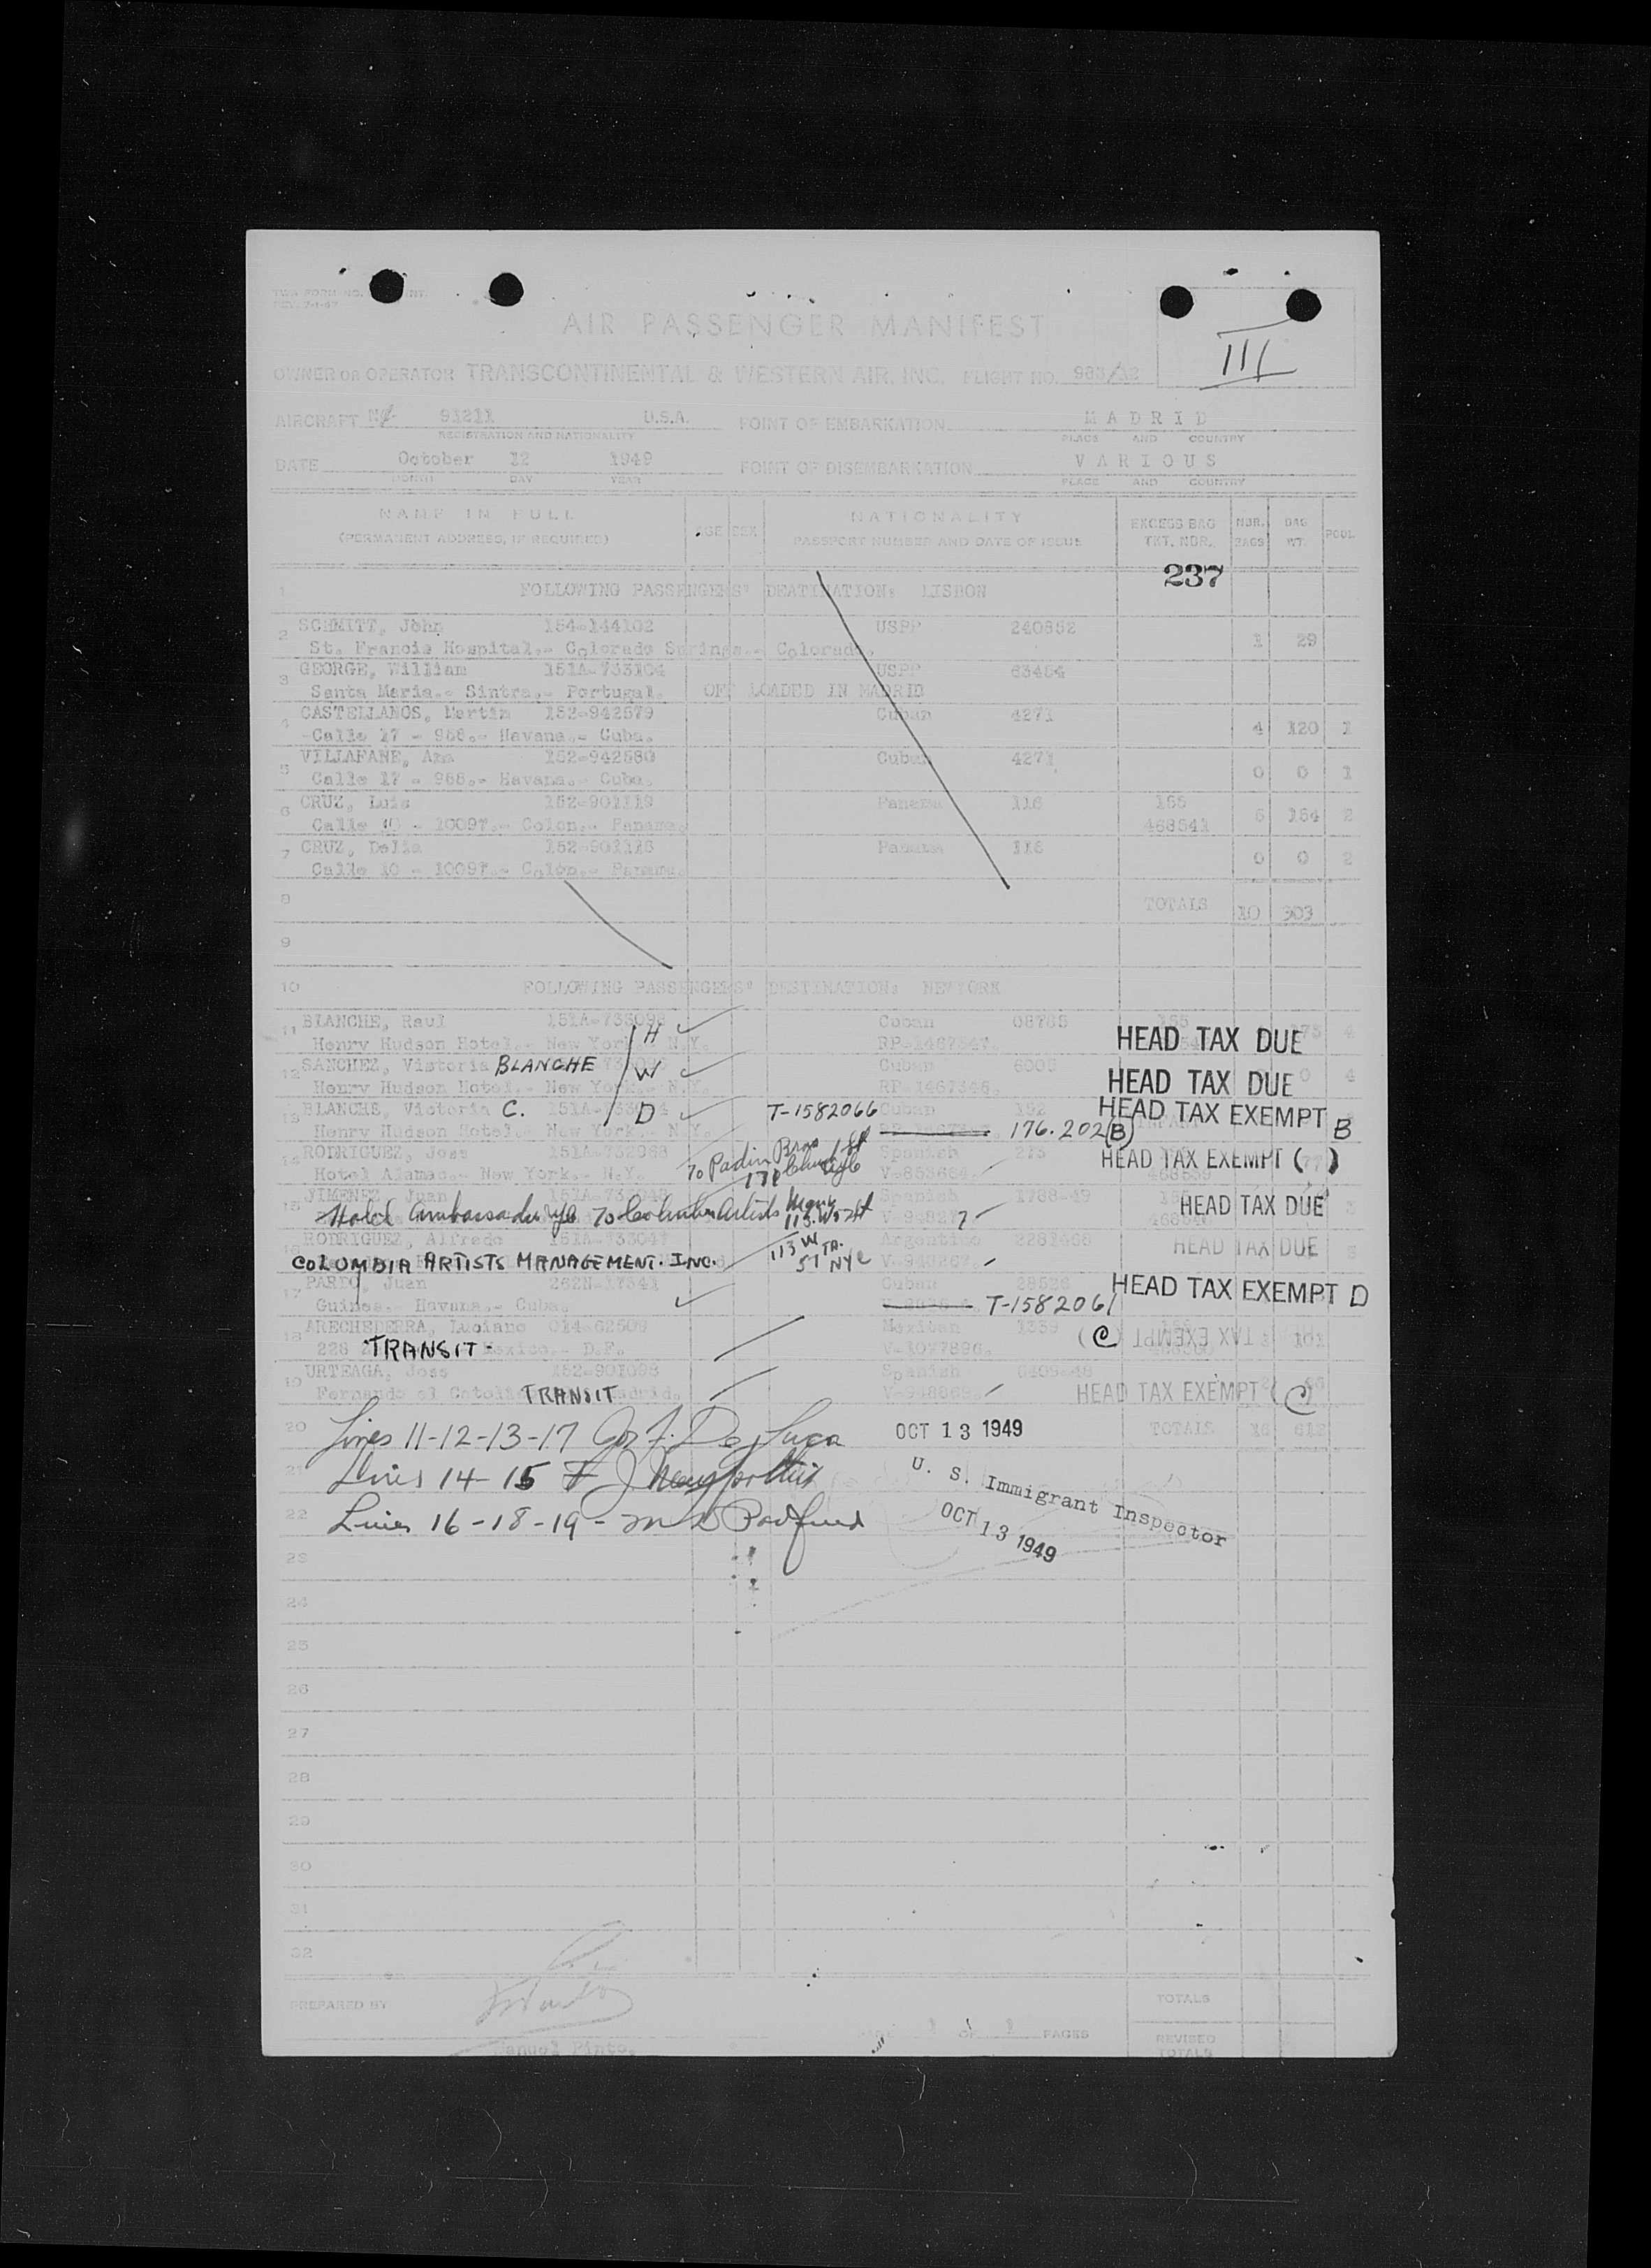 AIR PASSENGER MANIFEST
III
OWNER OR OPERATOR TRANSCONTINENTAL & WESTERN AIR, INC. FLIGHT NO. 963/12
AIRCRAFT 91211 U.S.A. POINT OF EMBARKATION MADRID
REGISTRATION AND NATIONALITY PLACE AND COUNTRY
DATE October 12 1949 POINT OF DISEMBARKATION VARIOUS
MONTH DAY YEAR PLACE AND COUNTRY
NAME IN FULL AGE SEX NATIONALITY EXCESS BAG NBR. BAG POOL
(PERMANENT ADDRESS, IF REQUIRED) PASSPORT NUMBER AND DATE OF ISSUE TKT. NBR. BAGS WT.
237
1 FOLLOWING PASSENGERS' DEATINATION: LISBON
2 SCHMITT, John 154-144102 USPP 240852
St. Francis Hospital.- Colorado Springs.- Colorado. 1 29
3 GEORGE, William 151A-733104 USPP 63454
Santa Maria.- Sintra.- Portugal. OFF LOADED IN MADRID
4 CASTELLANOS, Martin 152-942579 Cuban 4271
Calle 17 - 968.- Havana.- Cuba. 4 120 1
5 VILLAFANE, Ana 152-942580 Cuban 4271
Calle 17 - 968.- Havana.- Cuba. 0 0 1
6 CRUZ, Luis 152-901119 Panama 116 155
Calle 10 - 10097.- Colon.- Panama. 468541 5 154 2
7 CRUZ, Delia Panama 116
Calle 10 - 10097.- Colon.- Panama. 0 0 2
8 TOTALS 10 303
9
10 FOLLOWING PASSENGERS' DESTINATION: NEWYORK
11 BLANCHE, Raul H Cuban HEAD TAX DUE 4
Henry Hudson Hotel.- New York.- N.Y.
12 SANCHEZ, Victoria BLANCHE W Cuban 6005 HEAD TAX DUE 0 4
Henry Hudson Hotel.- New York.- N.Y. RP-1467346.
13 BLANCHE, Victoria C. D T-1582066 Cuban 192 HEAD TAX EXEMPT B
Henry Hudson Hotel.- New York.- N.Y. 176.202(B)
14 RODRIGUEZ, Jose Spanish 273 HEAD TAX EXEMPT ( )
Hotel Alamac.- New York.- N.Y. To Padin Bros
15 JIMENEZ, Juan Spanish 1788-49 HEAD TAX DUE
Hotel Ambassador nyc To Columbia Artists 113 W 57 St
16 RODRIGUEZ, Alfredo 151A-733047 Argentine HEAD TAX DUE
COLUMBIA ARTISTS MANAGEMENT. INC. 113 W 57 NYC
17 PARDO, Juan Cuban 28526 HEAD TAX EXEMPT D
Guines.- Havana.- Cuba. T-1582061
18 ARECHEDERRA, Luciano 014-62509 Mexican 1339 HEAD TAX EXEMPT (C) 101
TRANSIT- Mexico.- D.F. V-1077896.
19 URTEAGA, Jose 152-901098 Spanish 6409-48 HEAD TAX EXEMPT (C)
Fernando el Catolico TRANSIT Madrid.
20 Lines 11-12-13-17 Jos. J. De Luca OCT 13 1949 TOTALS 16 612
21 Lines 14-15 F J
U. S. Immigrant Inspector
22 Lines 16-18-19- OCT 13 1949
23
24
25
26
27
28
29
30
31
32
PREPARED BY TOTALS
Manuel Pinto. PAGE 1 OF 1 PAGES REVISED
TOTALS